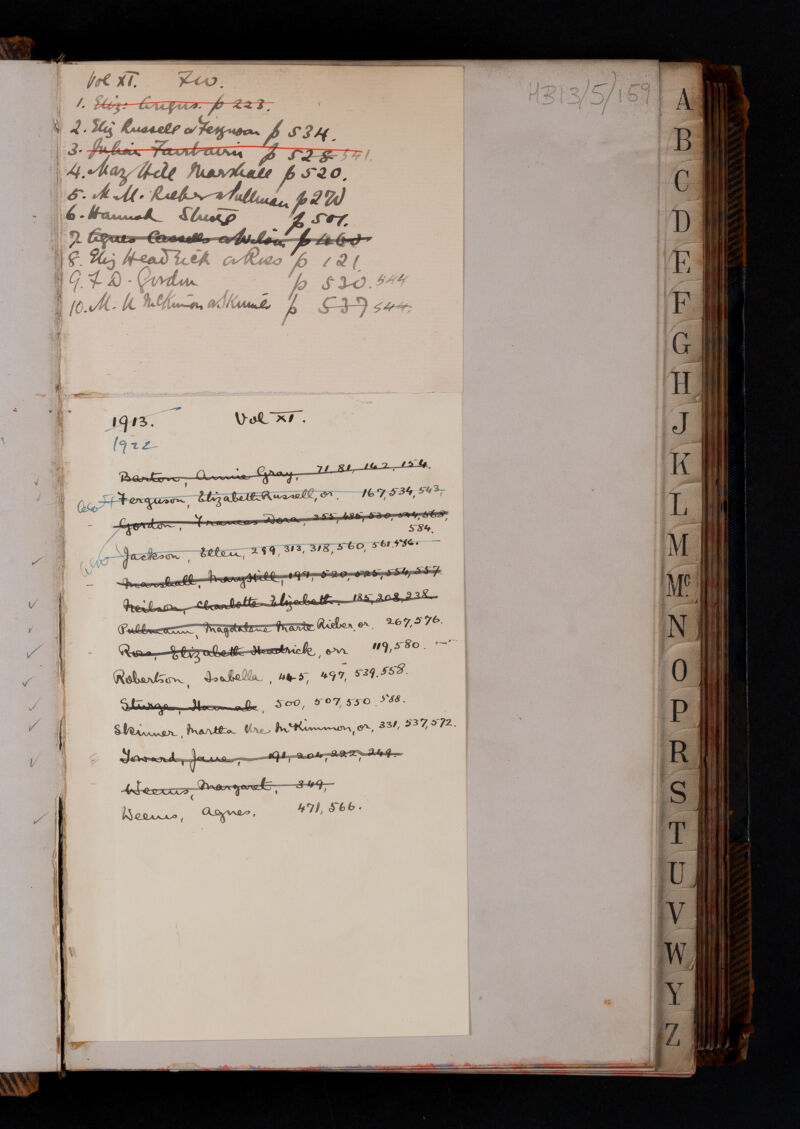 Vol XI. Few.
1. Eliz: Angus. p 223.
2. Eliz Russell or Ferguson p 534.
3. Julian Fairbairn p 528 541.
4. Mary Hill Marshall p 520.
5. M. M. Rieber or Pullman p 270
6. Hannah Sturge p 501.
7. Agnes Cassells or Wilson p 460
8. Eliz Headrick or Ross p 121
9. F D. Gordon p 530. 544
10. M. U McKimmon or Skinner p 537 544.
H313/5/159
1913. Vol XI.
1922
Barton, Annie Gray, 71, 81, 142, 154.
Ferguson, Elizabeth Russell, or, 167, 534, 543,
Gordon, Frances Dora, 255, 485, 530, 544, 568,
584.
Jackson, Ellen, 299, 313, 318, 560, 561, 586.
Marshall, Mary Hill, 199, 520, 525, 554, 557
Neilson, Charlotte Elizabeth, 185, 208, 238
Pullmann, Magdalene Marie Rieber or, 267, 576.
Ross, Elizabeth Headrick, or 119, 580.
Robertson, Isabella, 445, 497, 539, 558.
Sturge, Hannah, 500, 507, 550, 588.
Skinner, Martha Ure McKimmon, or, 331, 537, 572.
Toward, Jane, 191, 204, 222, 249.
Weems, Margaret, 349,
Weems, Agnes, 471, 566.
A
B
C
D
E
F
G
H
J
K
L
M
Mc
N
O
P
R
S
T
U
V
W
Y
Z